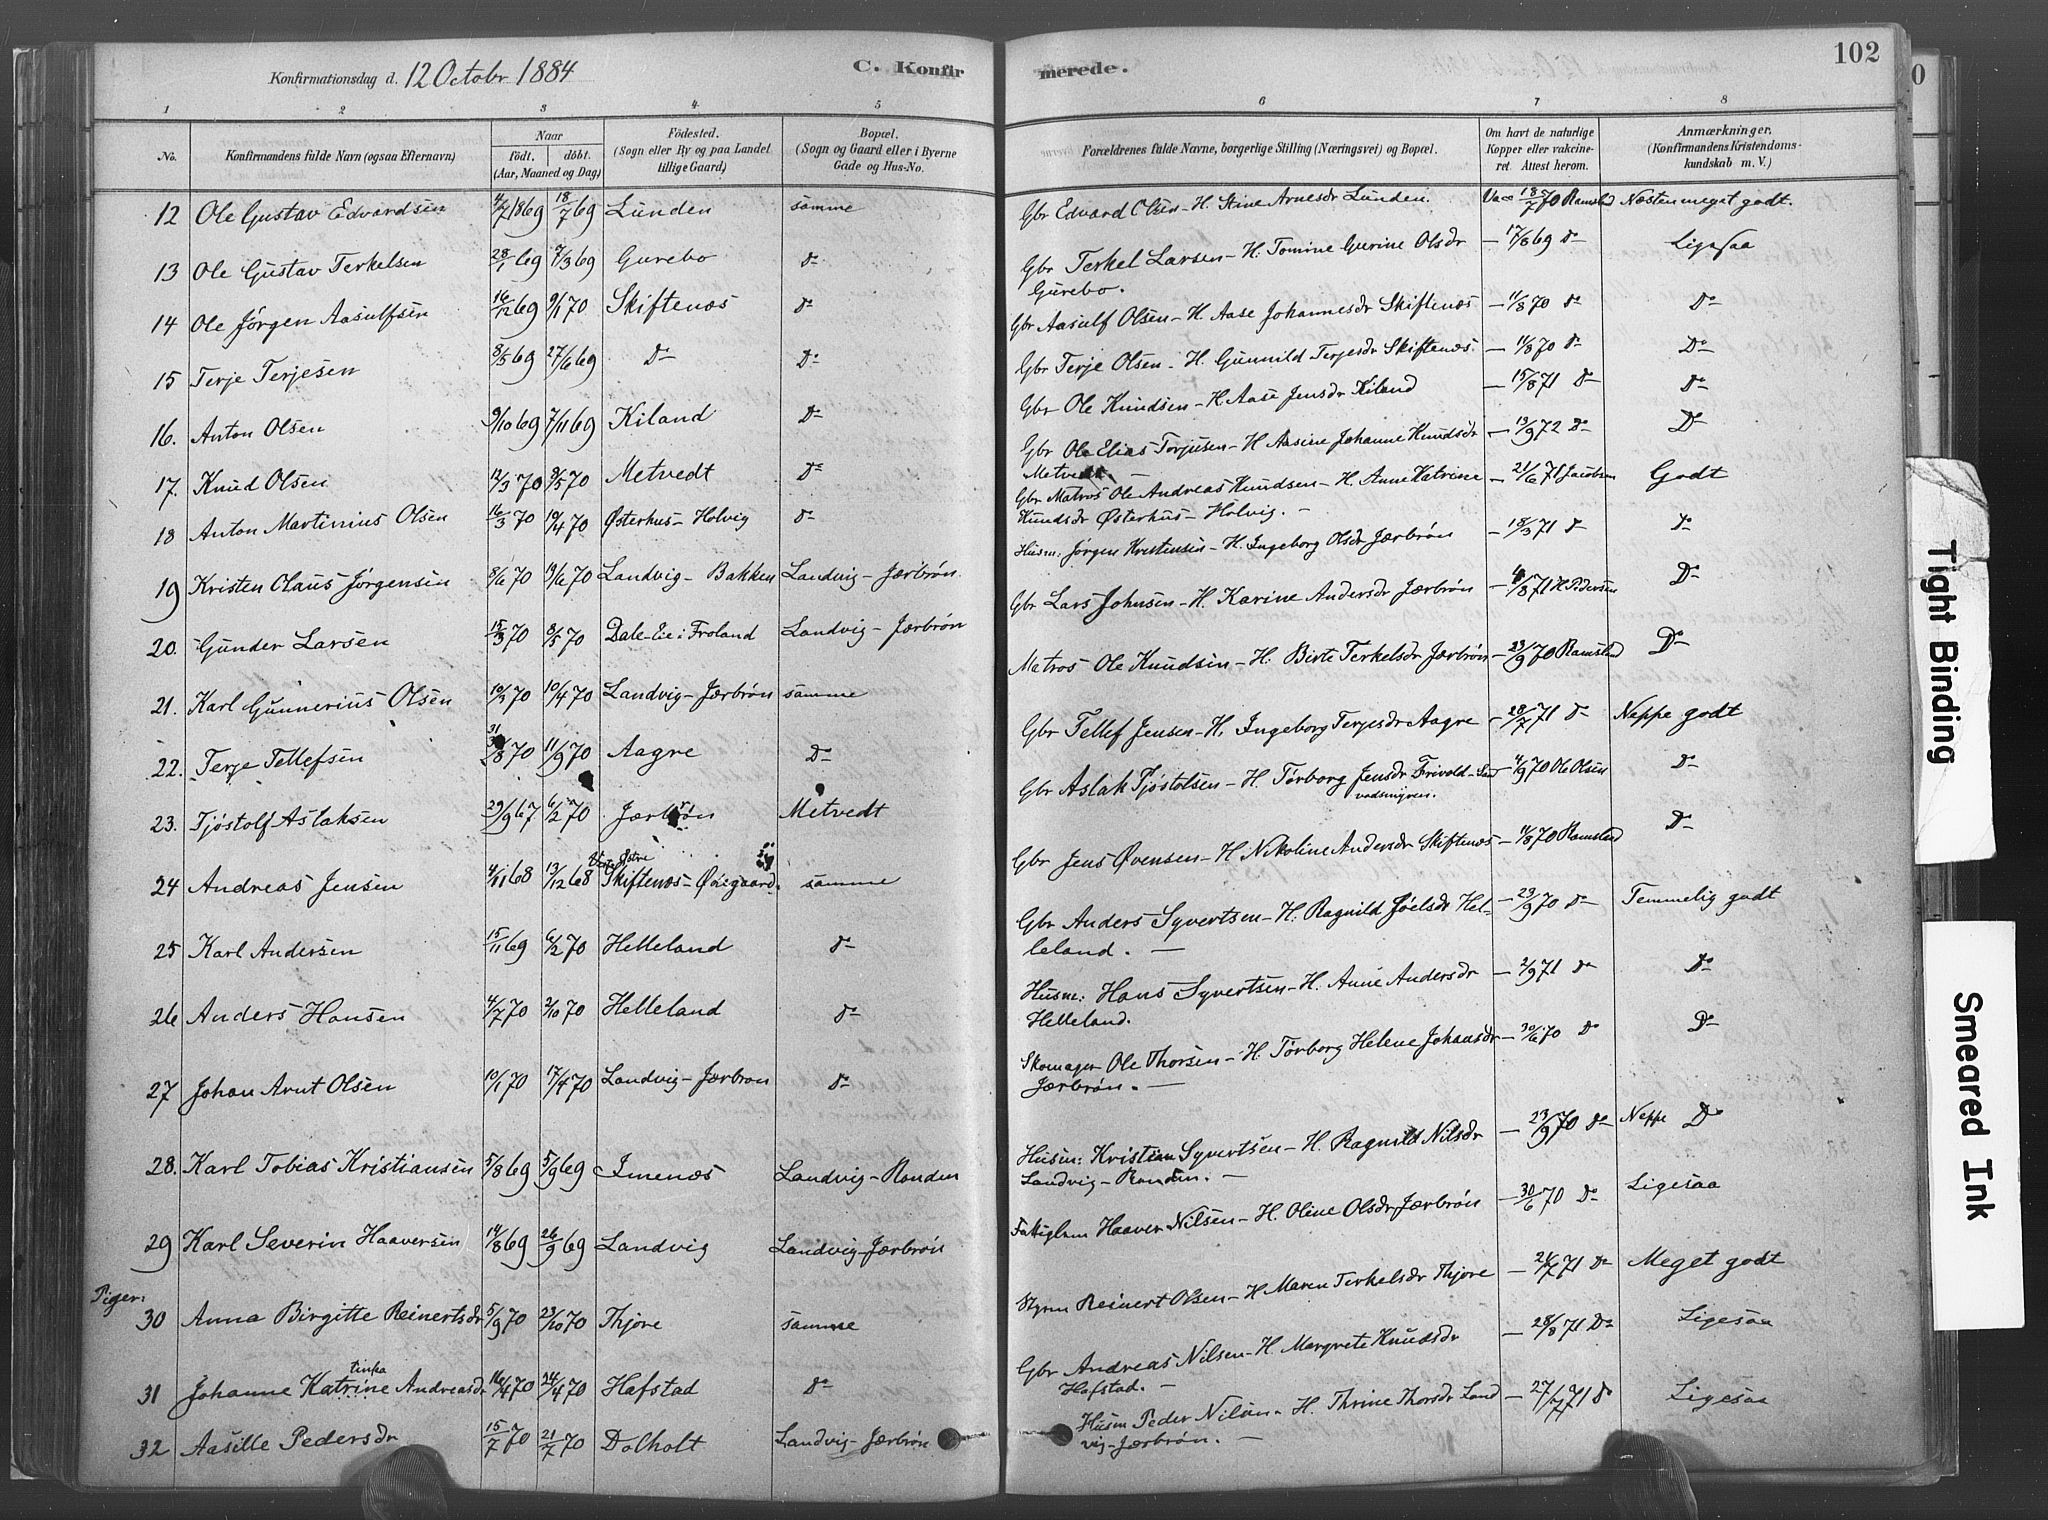 Konfirmationsdag d. 12 Octobr 1884
C. Konfir
merede.
102
1 2 3 4 5 6 7 8
No.
Konfirmandens fulde Navn (ogsaa Efternavn)
Naar
Födt. döbt.
(Aar, Maaned og Dag)
Födested.
(Sogn eller By og paa Landet
tillige Gaard)
Bopæl.
(Sogn og Gaard eller i Byerne
Gade og Hus-No.
Forældrenes fulde Navne, borgerlige Stilling (Næringsvei) og Bopæl.
Om havt de naturlige
Kopper eller vakcine-
ret Attest herom.
Anmærkninger.
(Konfirmandens Kristendoms-
kundskab m. V.)
12 Ole Gustav Edvardsen 4/7 1869 18/7 69 Lunden samme Gbr Edvard Olsen - H. Stine Arnesdr Lunden. Vac 18/7 70 Ramsled Næsten meget godt.
13 Ole Gustav Terkelsen 28/1 69 7/3 69 Gurebo do Gbr Terkel Larsen - H. Tomine Gurine Olsdr - 17/8 69 do Ligesaa
Gurebo.
14 Ole Jørgen Aasulfsen 16/12 69 9/1 70 Skiftenæs do Gbr Aasulf Olsen - H. Aase Johannesdr Skiftenæs - 11/8 70 do Do
15 Terje Terjesen 8/5 69 27/6 69 Do Do Gbr Terje Olsen - H. Gunnild Terjesdr Skiftenæs. - 11/8 70 do Do
16. Anton Olsen 9/10 69 7/11 69 Kiland Do Gbr Ole Knudsen - H. Aase Jensdr Kiland - 15/8 71 do Do
17. Knud Olsen 12/3 70 8/5 70 Metvedt Do Gbr Ole Elias Torjusen - H. Aasine Johanne Knudsdr - 13/9 72 Do Do
Metvedt -
18 Anton Martinius Olsen 16/3 70 10/4 70 Østerhus - Holvig do Gbr Matros Ole Andreas Knudsen - H. Anne Katrine - 21/6 71 Jacobsen Godt
Knudsdr Østerhus - Holvig. -
19 Kristen Olaus Jørgensen 8/6 70 19/6 70 Landvig - Bakken Landvig - Jærbrøn. Husm: Jørgen Kristensen - H. Ingeborg Olsdr Jærbrøn - 18/3 71 do do
20. Gunder Larsen 15/3 70 8/5 70 Dale-Eie i Froland Landvig - Jærbrøn Gbr Lars Johnsen - H. Karine Andersdr Jærbrøn - 4/8 71 H Pedersen Do
21. Karl Gunnerius Olsen 10/3 70 10/4 70 Landvig - Jærbrøn samme Matros Ole Knudsen - H. Birte Terkelsdr Jærbrøn - 23/9 70 Ramsled Do
22. Terje Tellefsen 31/8 70 11/9 70 Aagre Do Gbr Tellef Jensen - H. Ingeborg Terjesdr Aagre - 28/7 71 do Neppe godt
23. Tjøstolf Aslaksen 29/9 67 6/2 70 Jærbrøn Metvedt Gbr Aslak Tjøstolsen - H. Tørborg Jensdr Frivold - 4/9 70 Ole Olsen Do
24 Andreas Jensen 4/11 68 13/12 68 Østre Skiftenæs - samme Gbr Jens Øvensen - H. Nikoline Andersdr Skiftenæs - 11/8 70 Ramsled Do
25 Karl Andersen 15/11 69 6/2 70 Helleland do Gbr Anders Syvertsen - H. Ragnild Joelsdr Hel- - 23/9 70 do Temmelig godt
leland. -
26 Anders Hansen 4/7 70 2/10 70 Helleland do Husm: Hans Syvertsen - H. Anne Andersdr - 2/9 71 do Do
Helleland.
27 Johan Arnt Olsen 10/1 70 17/4 70 Landvig - Jærbrøn do Skomager Ole Thorsen - H. Tørborg Helene Johansdr - 30/6 70 do Do
Jærbrøn. -
28. Karl Tobias Kristiansen 5/8 69 5/9 69 Imenæs Landvig - Randen Husm: Kristian Syvertsen - H. Ragnild Nilsdr - 23/9 70 do Neppe Do
Landvig - Randen. -
29 Karl Severin Haaversen 14/8 69 26/9 69 Landvig Landvig - Jærbrøn Fattiglem Haaver Nilsen - H. Oline Olsdr Jærbrøn - 30/6 70 do Ligesaa
Piger:
30 Anna Birgitte Reinertsdr 5/9 70 23/10 70 Thjøre samme Styrm Reinert Olsen - H. Maren Terkelsdr Thjøre - 24/7 71 Do Meget godt
31 Johanne Katrine tinka Andreasdr 16/4 70 24/4 70 Hafstad do Gbr Andreas Nilsen - H. Margrete Knudsdr - 28/8 71 Do Ligesaa
Hafstad. -
32 Aasille Pedersdr 15/7 70 21/7 70 Dalholt Landvig - Jærbrøn Husm Peder Nilsen - H. Thrine Thorsdr Land - 27/7 71 do Ligesaa
vig - Jærbrøn. -
Tight Binding
Smeared Ink